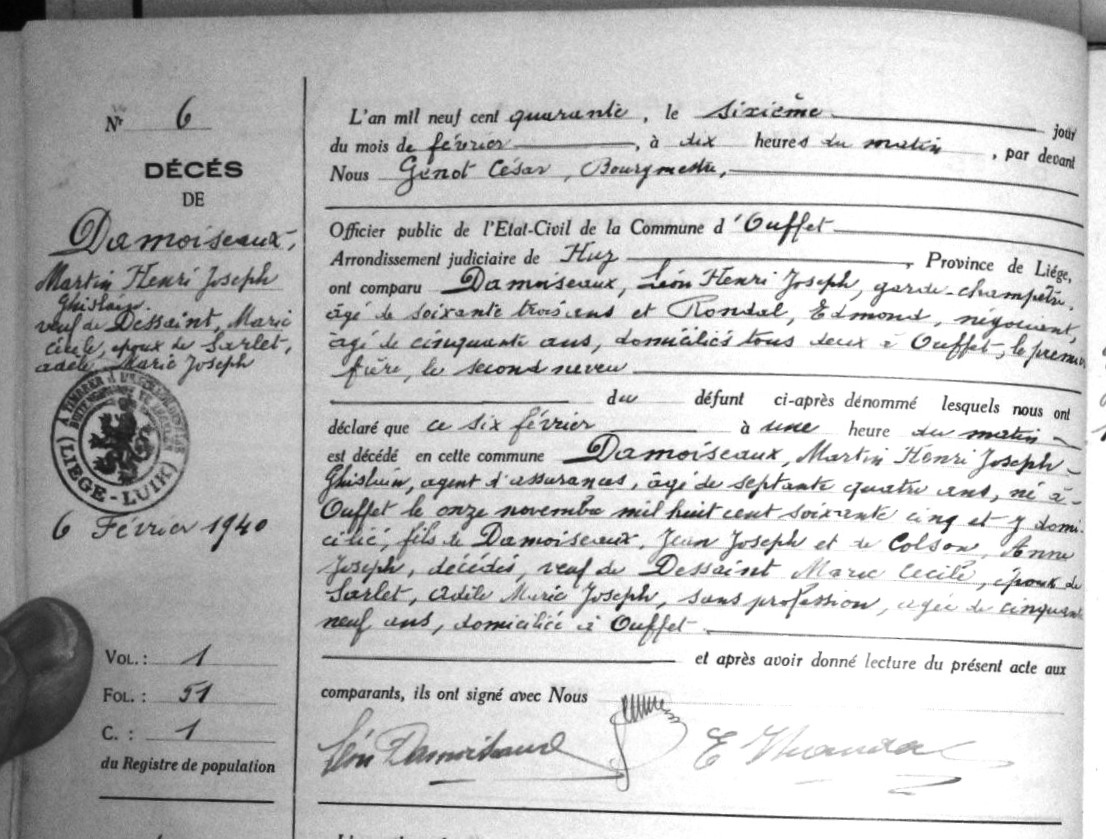 N° 6
DÉCÉS
DE
Damoiseaux,
Martin Henri Joseph
Ghislain.
veuf de Dessaint, Marie
Cécile, époux de Sarlet,
Adèle Marie Joseph
A TIMBRER A L'EXTRAORDINAIRE
(LIÈGE-LUIK)
6 Février 1940
VOL. : 1
FOL. : 51
C. : 1
du Registre de population
L'an mil neuf cent quarante, le sixième jour
du mois de février, à dix heures du matin, par devant
Nous Genot César, Bourgmestre,
Officier public de l'Etat-Civil de la Commune d'Ouffet
Arrondissement judiciaire de Huy, Province de Liége,
ont comparu Damoiseaux, Léon Henri Joseph, garde-champêtre,
âgé de soixante trois ans et Rondal, Edmond, négociant,
âgé de cinquante ans, domiciliés tous deux à Ouffet, le premier
frère, le second neveu
du défunt ci-après dénommé lesquels nous ont
déclaré que ce six février à une heure du matin
est décédé en cette commune Damoiseaux, Martin Henri Joseph
Ghislain, agent d'assurances, âgé de septante quatre ans, né à
Ouffet le onze novembre mil huit cent soixante cinq et y domi-
cilié, fils de Damoiseaux, Jean Joseph et de Colson, Anne
Joseph, décédés, veuf de Dessaint Marie Cécile, époux de
Sarlet, Adèle Marie Joseph, sans profession, agée de cinquante
neuf ans, domiciliée à Ouffet
et après avoir donné lecture du présent acte aux
comparants, ils ont signé avec Nous
Léon Damoiseaux